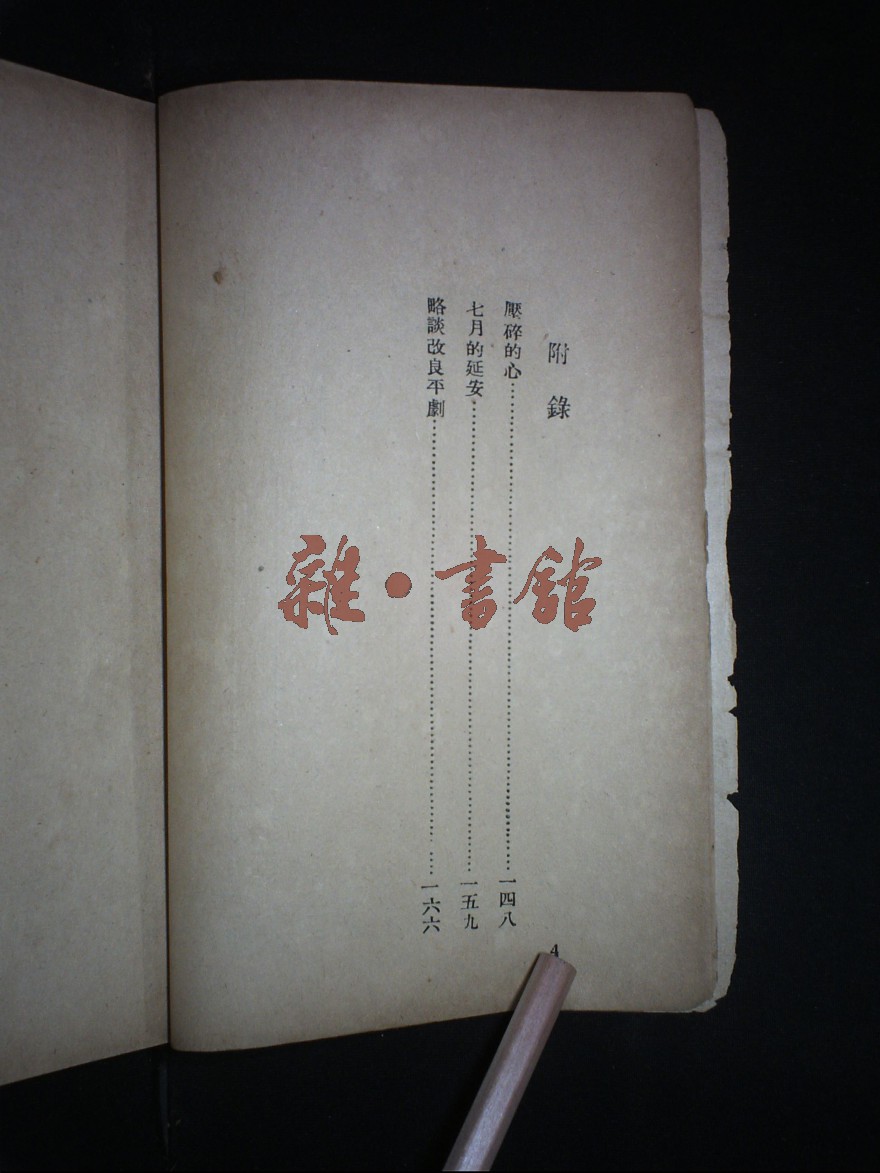 附錄
壓碎的心……一四八
七月的延安……一五九
略談改良平劇……一六六
4
雜·書館